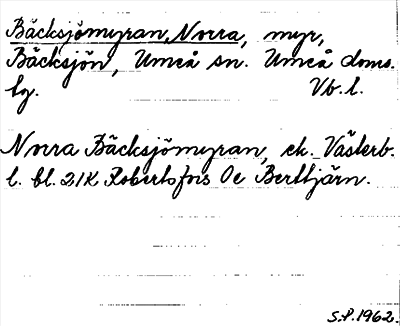 Bäcksjömyran, Norra, myr,
Bäcksjön, Umeå sn. Umeå doms.
by. Vb. l.
Norra Bäcksjömyran, ek. Västerb.
l. bl. 21K Robertsfors Oc Berttjärn.
S.P. 1962.